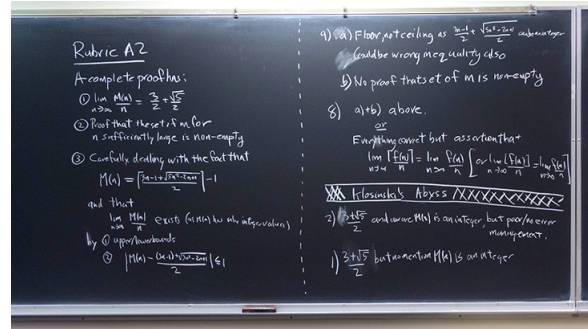 Rubric A2
A complete proof has:
① lim n→∞ M(n)/n = 3/2 + √5/2
② Proof that the set of m for
n sufficiently large is non-empty
③ Carefully dealing with the fact that
M(n) = ⌈(3n-1+√(5n²-2n+1))/2⌉ - 1
and that
lim n→∞ M(n)/n exists (as M(n) has integer values)
by ① upper/lower bounds
② |M(n) - ((3n-1)+√(5n²-2n+1))/2| ≤ 1
9) a) Floor, not ceiling as (3n-1)/2 + √(5n²-2n+1)/2 can be an integer
Could be wrong inequality also
b) No proof that set of m is non-empty
8) a)+b) above.
or
Everything correct but assertion that
lim n→∞ ⌈f(n)⌉/n = lim n→∞ f(n)/n [or lim n→∞ ⌊f(n)⌋/n = lim n→∞ f(n)/n]
Klosinski's Abyss
2) (3+√5)/2 and aware M(n) is an integer, but poor/no error
management.
1) (3+√5)/2 but no mention M(n) is an integer